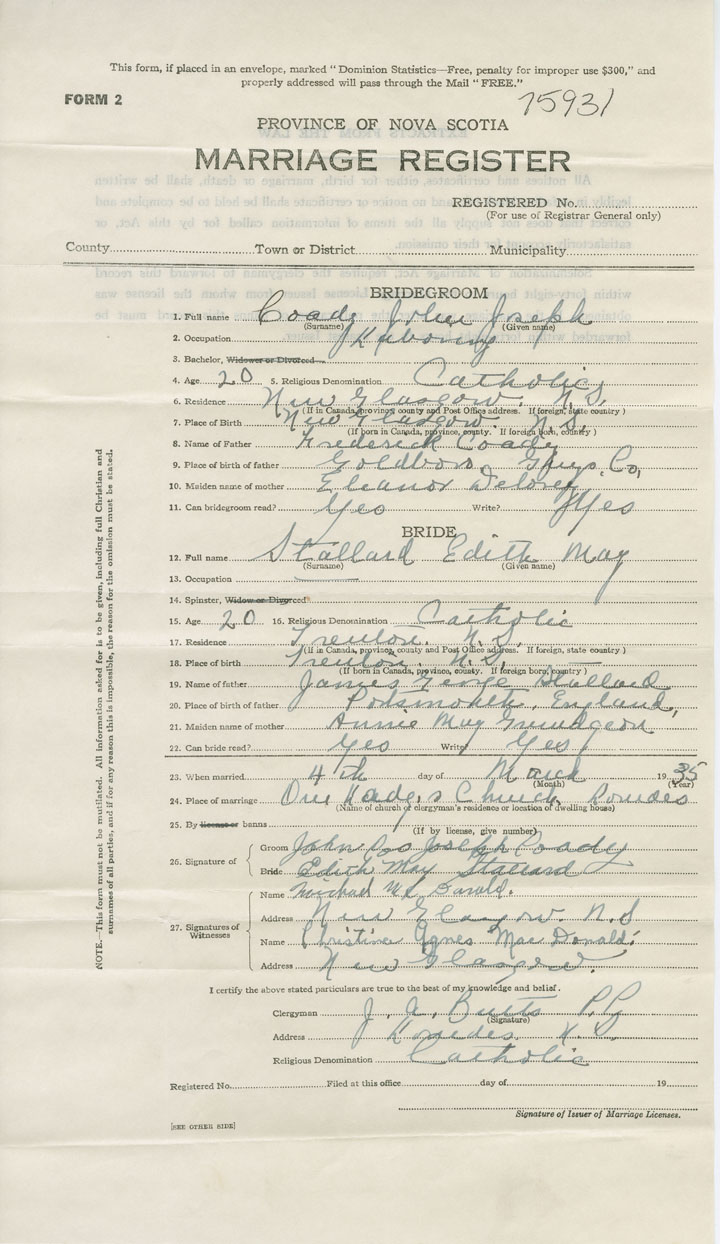 This form, if placed in an envelope, marked "Dominion Statistics—Free, penalty for improper use $300," and
properly addressed will pass through the Mail "FREE."
FORM 2
75931
PROVINCE OF NOVA SCOTIA
MARRIAGE REGISTER
REGISTERED No.
(For use of Registrar General only)
County Town or District Municipality
BRIDEGROOM
1. Full name Coady John Joseph
(Surname) (Given name)
2. Occupation
3. Bachelor, Widower or Divorced
4. Age 20 5. Religious Denomination Catholic
6. Residence New Glasgow. N.S.
(If in Canada, province, county and Post Office address. If foreign, state country)
7. Place of Birth New Glasgow. N.S.
(If born in Canada, province, county. If foreign born, country)
8. Name of Father Frederick Coady
9. Place of birth of father Goldboro, Guys. Co,
10. Maiden name of mother Eleanor Delorey
11. Can bridegroom read? Yes Write? Yes
BRIDE
12. Full name Stallard Edith May
(Surname) (Given name)
13. Occupation
14. Spinster, Widow or Divorced
15. Age 20 16. Religious Denomination Catholic
17. Residence Trenton. N.S.
(If in Canada, province, county and Post Office address. If foreign, state country)
18. Place of birth Trenton. N.S.
(If born in Canada, province, county. If foreign born, country)
19. Name of father James George Stallard
20. Place of birth of father Portsmouth, England,
21. Maiden name of mother Annie May
22. Can bride read? Yes Write? Yes
23. When married 4th day of March 1935
(Month) (Year)
24. Place of marriage Our Lady's Church Lourdes
(Name of church or clergyman's residence or location of dwelling house)
25. By license or banns
(If by license, give number)
26. Signature of
Groom John Joseph Coady
Bride Edith May Stallard
27. Signatures of Witnesses
Name Michael
Address New Glasgow. N.S
Name Christina Agnes MacDonald.
Address New Glasgow.
I certify the above stated particulars are true to the best of my knowledge and belief.
Clergyman J. J. Butts P.P.
(Signature)
Address Lourdes N.S.
Religious Denomination Catholic
Registered No. Filed at this office day of 19
Signature of Issuer of Marriage Licenses.
[SEE OTHER SIDE]
NOTE.—This form must not be mutilated. All information asked for is to be given, including full Christian and
surnames of all parties, and if for any reason this is impossible, the reason for the omission must be stated.